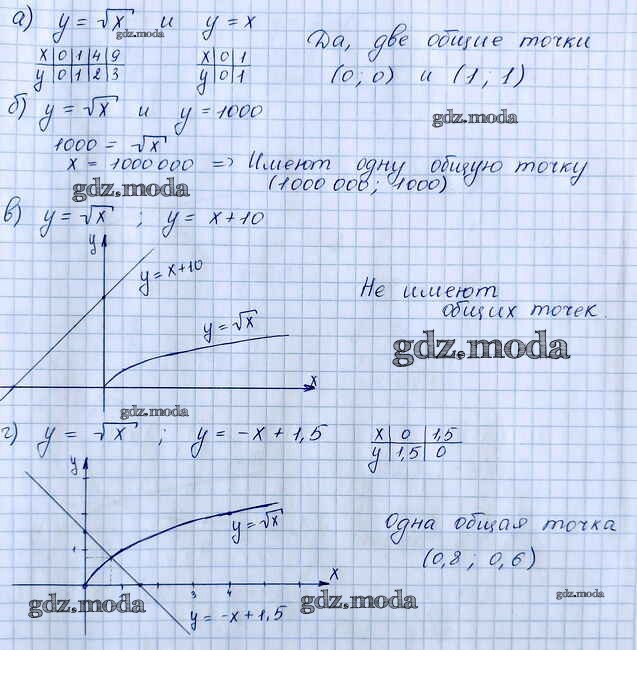 а) y = √x и y = x
gdz.moda
x 0 1 4 9
y 0 1 2 3
x 0 1
y 0 1
Да, две общие точки
(0; 0) и (1; 1)
б) y = √x и y = 1000
gdz.moda
1000 = √x
x = 1000 000 => Имеют одну общую точку
(1000 000; 1000)
gdz.moda
в) y = √x ; y = x+10
y
y = x+10
y = √x
x
Не имеют
общих точек.
gdz.moda
gdz.moda
г) y = √x ; y = -x + 1,5
x 0 1,5
y 1,5 0
y
1
y = √x
3 4
x
y = -x + 1,5
Одна общая точка
(0,8 ; 0,6)
gdz.moda
gdz.moda
gdz.moda